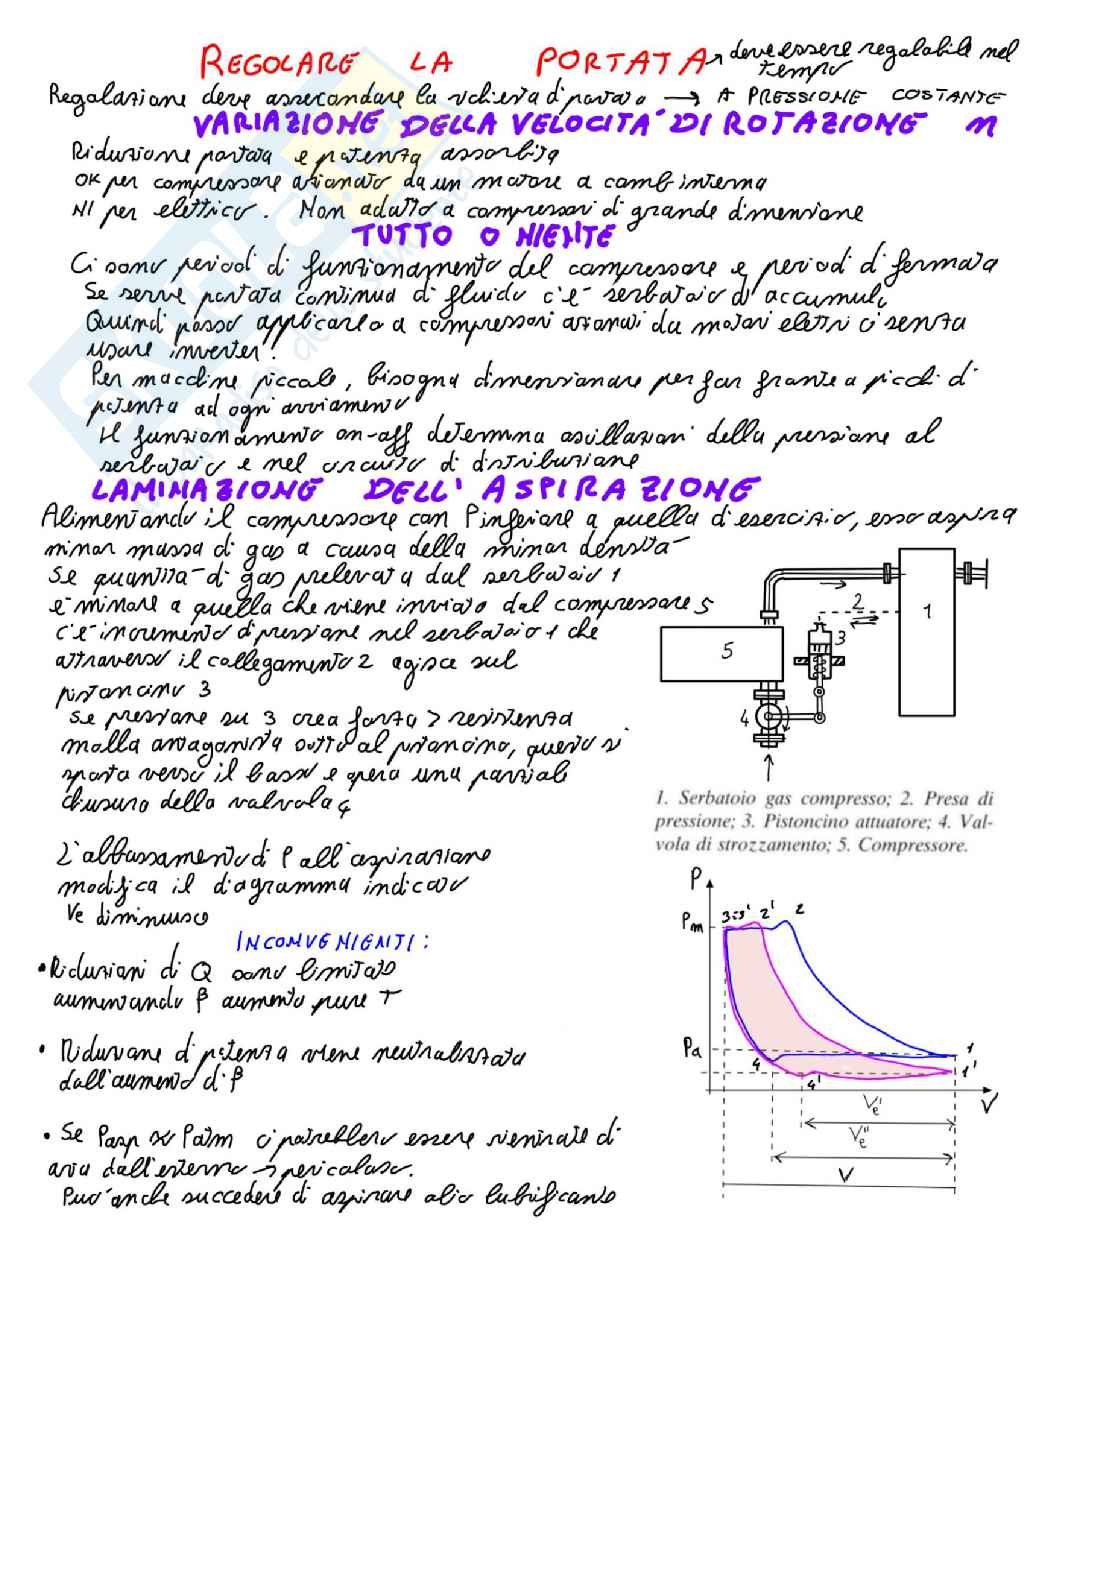 REGOLARE LA PORTATA → deve essere regolabile nel tempo
Regolazione deve assecondare la richiesta di portata → A PRESSIONE COSTANTE
VARIAZIONE DELLA VELOCITA' DI ROTAZIONE n
Riduzione portata e potenza assorbita
OK per compressore azionato da un motore a comb interna
NI per elettico. Non adatto a compressori di grande dimensione
TUTTO O NIENTE
Ci sono periodi di funzionamento del compressore e periodi di fermata
Se serve portata continua di fluido c'è serbatoio di accumulo
Quindi posso applicarlo a compressori azionati da motori elettrici senza
usare inverter!
Per macchine piccole, bisogna dimensionare per far fronte a picchi di
potenza ad ogni avviamento
Il funzionamento on-off determina oscillazioni della pressione al
serbatoio e nel circuito di distribuzione
LAMINAZIONE DELL'ASPIRAZIONE
Alimentando il compressore con P inferiore a quella di esercizio, esso aspira
minor massa di gas a causa della minor densità
Se quantità di gas prelevata dal serbatoio 1
è minore a quella che viene inviata dal compressore 5
c'è incremento di pressione nel serbatoio 1 che
attraverso il collegamento 2 agisce sul
pistoncino 3
Se pressione su 3 crea forza > resistenza
molla antagonista sotto al pistoncino, questo si
sposta verso il basso e opera una parziale
chiusura della valvola 4
1
2
3
4
5
1. Serbatoio gas compresso; 2. Presa di
pressione; 3. Pistoncino attuatore; 4. Val-
vola di strozzamento; 5. Compressore.
L'abbassamento di P all'aspirazione
modifica il diagramma indicato
Ve diminuisce
INCONVENIENTI:
• Riduzioni di Q sono limitate
aumentando β aumenta pure T
• Riduzione di potenza viene neutralizzata
dall'aumento di β
• Se Pasp ≈ Patm ci potrebbero essere rientrate di
aria dall'esterno → pericoloso.
Può anche succedere di aspirare olio lubrificante
P
Pm
3≡3' 2' 2
Pa
4
4'
1
1'
V
Ve'
Ve''
V